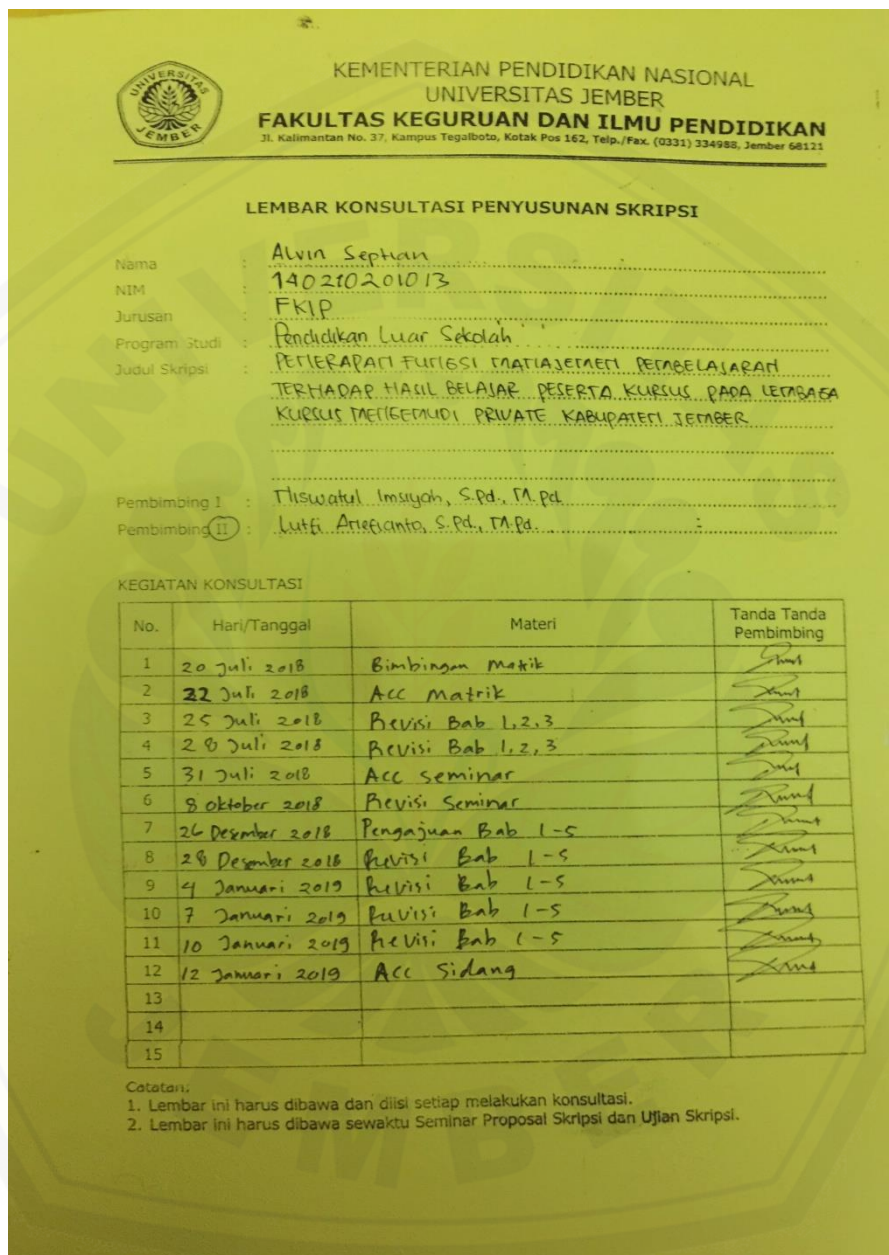 UNIVERSITAS JEMBER
KEMENTERIAN PENDIDIKAN NASIONAL
UNIVERSITAS JEMBER
FAKULTAS KEGURUAN DAN ILMU PENDIDIKAN
Jl. Kalimantan No. 37, Kampus Tegalboto, Kotak Pos 162, Telp./Fax. (0331) 334988, Jember 68121
LEMBAR KONSULTASI PENYUSUNAN SKRIPSI
Nama : Alvin Septian
NIM : 140210201013
Jurusan : FKIP
Program Studi : Pendidikan Luar Sekolah
Judul Skripsi : PENERAPAN FUNGSI MANAJEMEN PEMBELAJARAN
TERHADAP HASIL BELAJAR PESERTA KURSUS PADA LEMBAGA
KURSUS MENGEMUDI PRIVATE KABUPATEN JEMBER
Pembimbing I : Niswatul Imsiyah, S.Pd., M.Pd
Pembimbing II : Lutfi Ariefianto, S.Pd., M.Pd.
KEGIATAN KONSULTASI
No. Hari/Tanggal Materi Tanda Tanda Pembimbing
1 20 Juli 2018 Bimbingan Matrik
2 22 Juli 2018 Acc Matrik
3 25 Juli 2018 Revisi Bab 1,2,3
4 28 Juli 2018 Revisi Bab 1,2,3
5 31 Juli 2018 Acc seminar
6 8 Oktober 2018 Revisi Seminar
7 26 Desember 2018 Pengajuan Bab 1-5
8 28 Desember 2018 Revisi Bab 1-5
9 4 Januari 2019 Revisi Bab 1-5
10 7 Januari 2019 Revisi Bab 1-5
11 10 Januari 2019 Revisi Bab 1-5
12 12 Januari 2019 Acc Sidang
13
14
15
Catatan:
1. Lembar ini harus dibawa dan diisi setiap melakukan konsultasi.
2. Lembar ini harus dibawa sewaktu Seminar Proposal Skripsi dan Ujian Skripsi.